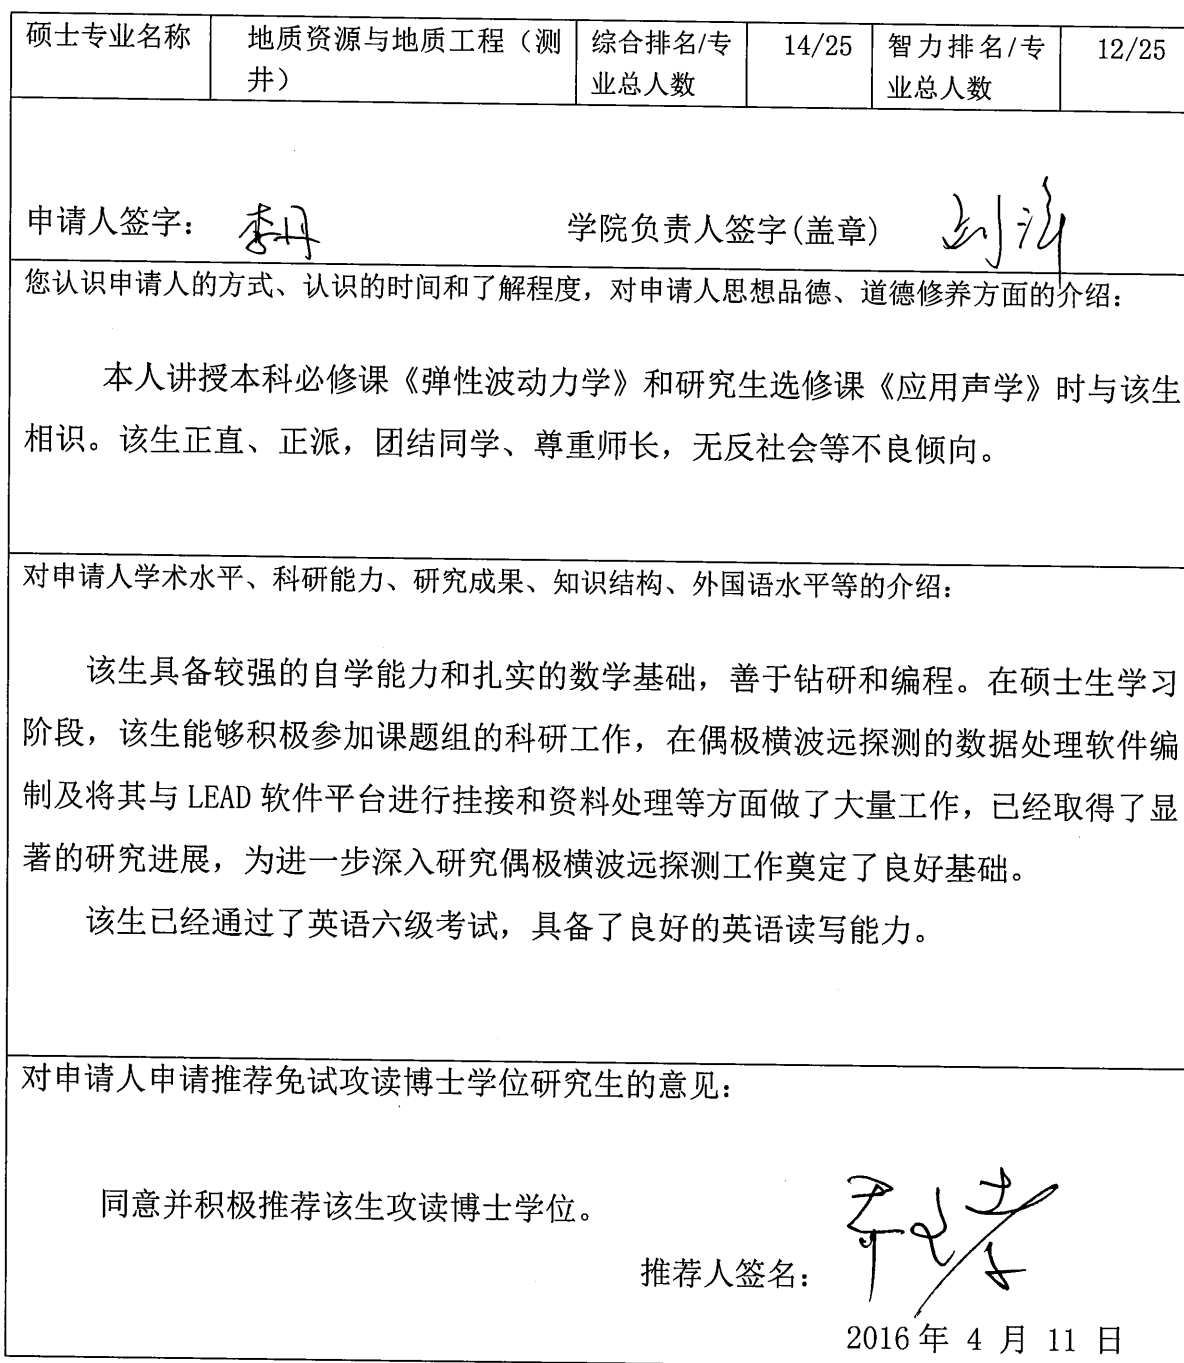 硕士专业名称 地质资源与地质工程（测 综合排名/专 14/25 智力排名/专 12/25
井） 业总人数 业总人数
申请人签字： 李丹 学院负责人签字(盖章)
您认识申请人的方式、认识的时间和了解程度，对申请人思想品德、道德修养方面的介绍：
本人讲授本科必修课《弹性波动力学》和研究生选修课《应用声学》时与该生
相识。该生正直、正派，团结同学、尊重师长，无反社会等不良倾向。
对申请人学术水平、科研能力、研究成果、知识结构、外国语水平等的介绍：
该生具备较强的自学能力和扎实的数学基础，善于钻研和编程。在硕士生学习
阶段，该生能够积极参加课题组的科研工作，在偶极横波远探测的数据处理软件编
制及将其与 LEAD 软件平台进行挂接和资料处理等方面做了大量工作，已经取得了显
著的研究进展，为进一步深入研究偶极横波远探测工作奠定了良好基础。
该生已经通过了英语六级考试，具备了良好的英语读写能力。
对申请人申请推荐免试攻读博士学位研究生的意见：
同意并积极推荐该生攻读博士学位。
推荐人签名：
2016 年 4 月 11 日